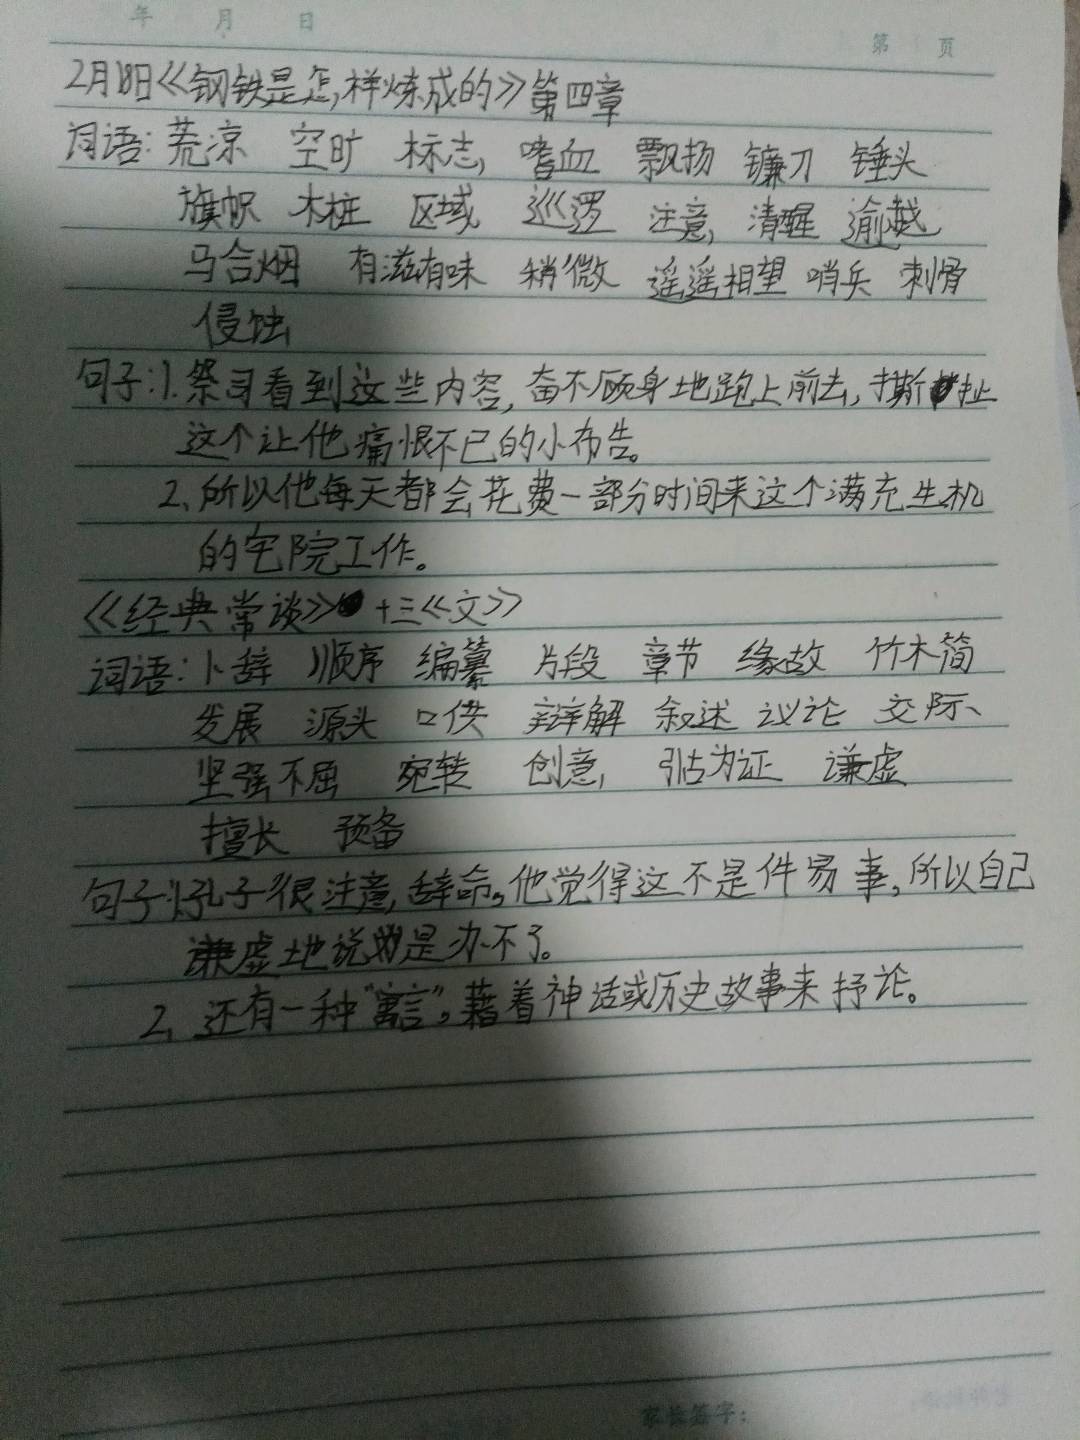 年 月 日
第 页
2月18日《钢铁是怎样炼成的》第四章
词语：荒凉 空旷 标志 嗜血 飘扬 镰刀 锤头
旗帜 木桩 区域 巡逻 注意 清醒 逾越
马合烟 有滋有味 稍微 遥遥相望 哨兵 刺骨
侵蚀
句子：1.祭司看到这些内容，奋不顾身地跑上前去，撕扯
这个让他痛恨不已的小布告。
2、所以他每天都会花费一部分时间来这个满充生机
的宅院工作。
《经典常谈》十三《文》
词语：卜辞 顺序 编纂 片段 章节 缘故 竹木简
发展 源头 口供 辩解 叙述 议论 交际、
坚强不屈 宛转 创意 引古为证 谦虚
擅长 预备
句子：1.孔子很注意辞命，他觉得这不是件易事，所以自己
谦虚地说是办不了。
2、还有一种“寓言”，藉着神话或历史故事来抒论。
家长签字：